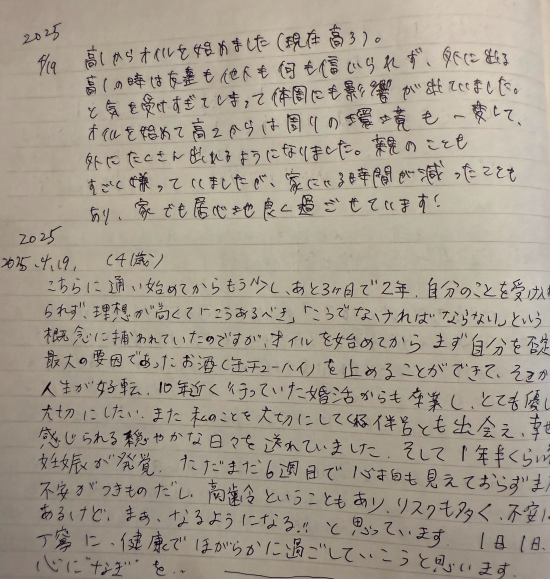 2025
4/19 高1からオイルを始めました(現在高3)。
高1の時は友達も他人も何も信じられず、外に出る
と気を受けすぎてしまって体調にも影響が出ていました。
オイルを始めて高2からは周りの環境も一変して、
外にたくさん出れるようになりました。親のことも
すごく嫌っていましたが、家にいる時間が減ったことも
あり、家でも居心地良く過ごせています!
2025
2025.4.19. (41歳)
こちらに通い始めてからもう少し、あと3ヶ月で2年。自分のことを受け入
られず、理想が高くて「こうあるべき」「こうでなければならない」という
概念に捕われていたのですが、オイルを始めてから まず自分を否定
最大の要因であったお酒(缶チューハイ)を止めることができて、そこか
人生が好転。10年近く行っていた婚活からも卒業し、とても優し
大切にしたい、また私のことを大切にしてく 伴侶とも出会え、幸せ
感じられる穏やかな日々を送れていました。そして1年半くらい
妊娠が発覚。ただまだ6週目で心拍も見えておらずまだ
不安がつきものだし、高齢ということもあり、リスクも多く、不安に
あるけど、まぁ、なるようになる!! と思っています。1日1日、
丁寧に、健康でほがらかに過ごしていこうと思います。
心に"なぎ"を..